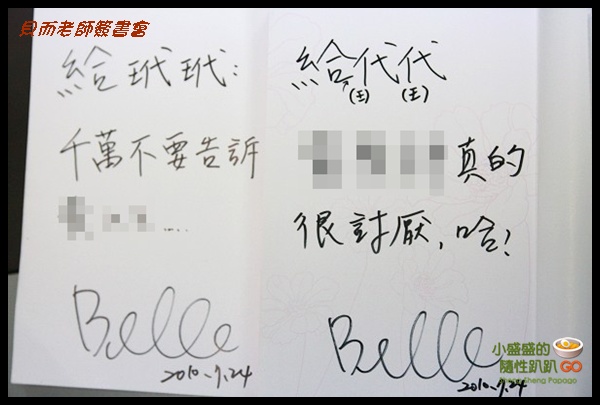 貝而老師簽書會
給玳玳:
千萬不要告訴
......
Belle
2010.7.24
給代代
(王) (王)
真的
很討厭,哈!
Belle
2010.7.24
小盛盛的
隨性趴趴GO
Sheng Sheng Papago